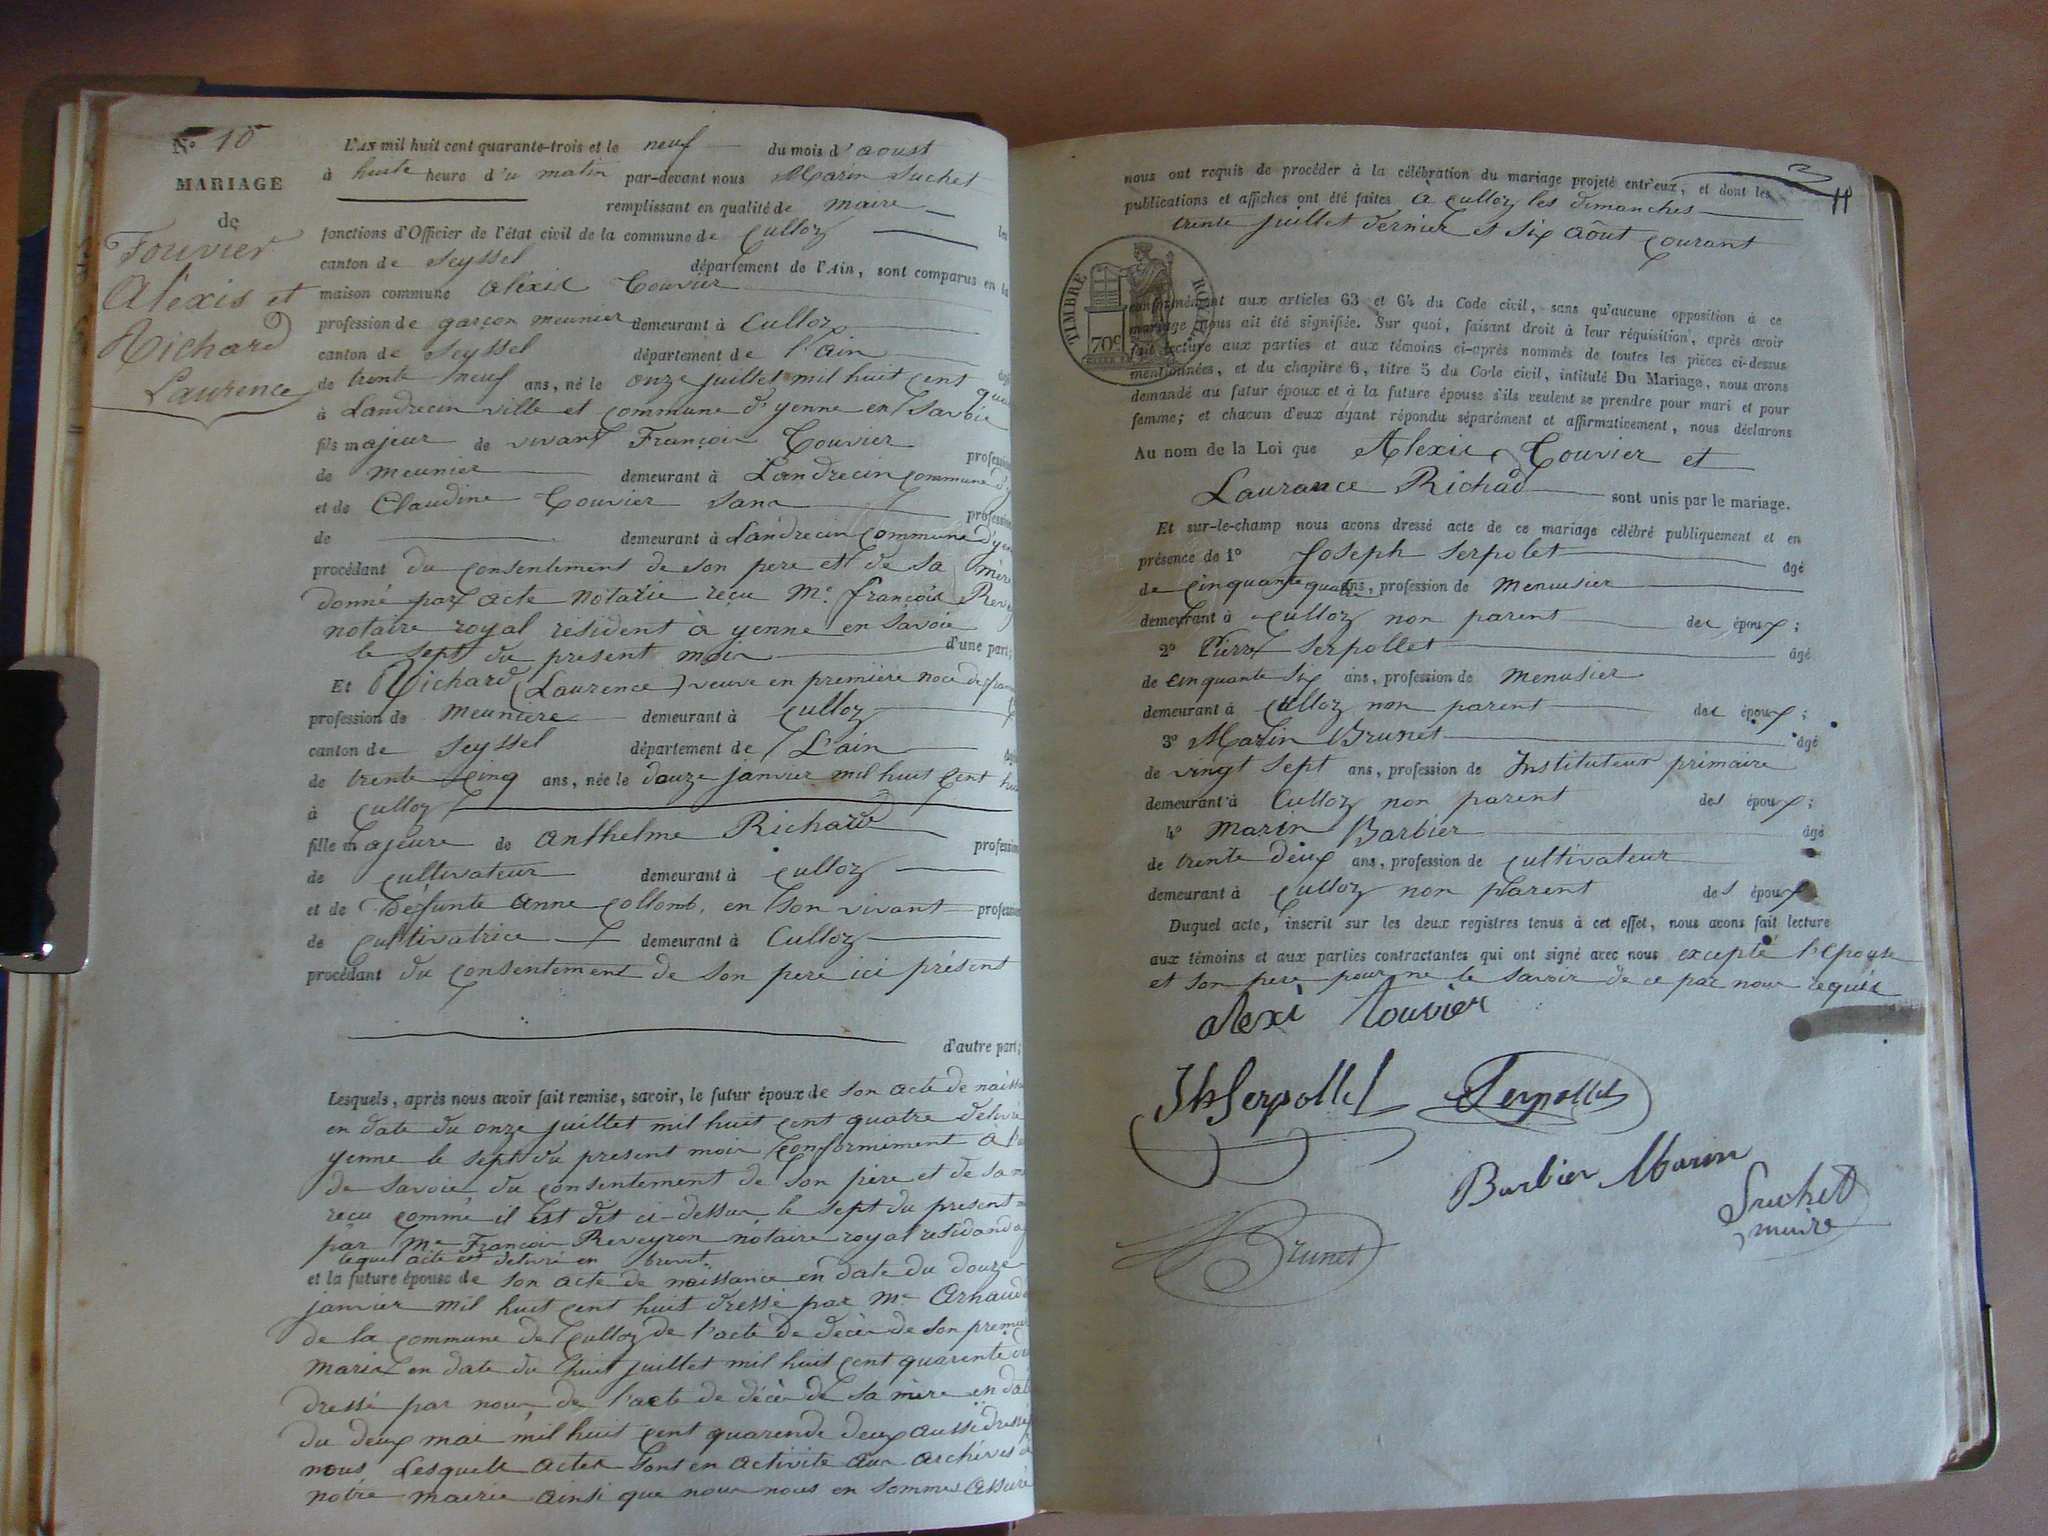 No 10
MARIAGE
de
Touvier
Alexis et
Richard
Laurence
L'AN mil huit cent quarante-trois et le neuf du mois d'aoust
à huite heure d'u matin par-devant nous Marin Suchet
remplissant en qualité de maire les
fonctions d'Officier de l'état civil de la commune de Culloz
canton de Seyssel département de l'Ain, sont comparus en la
maison commune Alexis Touvier
profession de garçon meunier demeurant à Culloz
canton de Seyssel département de l'ain
de trente neuf ans, né le onze juillet mil huit cent
à Landrecin ville et commune d'yenne en Savoie
fils majeur de vivant François Touvier profession
de meunier demeurant à Landrecin commune
et de Claudine Touvier sans profession
de demeurant à Landrecin commune
procédant du consentement de son pere et de sa mère
donné par acte notarié reçu Me françois
notaire royal résident à yenne en Savoie
le sept du present mois d'une part;
Et Richard (Laurence) veuve en première noce de
profession de meuniere demeurant à Culloz
canton de Seyssel département de L'ain
de trente cinq ans, née le douze janvier mil huit cent
à Culloz
fille majeure de anthelme Richard profession
de cultivateur demeurant à Culloz
et de Défunte anne Collomb, en son vivant profession
de cultivatrice demeurant à Culloz
procédant du consentement de son pere ici présent
d'autre part;
Lesquels, après nous avoir fait remise, savoir, le futur époux de son acte de
en date du onze juillet mil huit cent quatre
yenne le sept du present mois conformiment à
de savoie, du consentement de son père et de sa
reçu comme il est dit ci-dessus le sept du present
par Me François Reveyron notaire royal
lequel acte est délivré en brevet.
et la future épouse de son acte de naissance en date du douze
janvier mil huit cent huit dressé par Mr Arnaud
de la commune de Culloz de l'acte de décès de son premier
marie en date du huit juillet mil huit cent quarente
dressé par nous, de l'acte de décès de sa mère en
du deux mai mil huit cent quarende deux aussi
nous Lesquels actes sont en activité aux archives
notre mairie ainsi que nous nous en sommes assuré
11
nous ont requis de procéder à la célébration du mariage projeté entr'eux, et dont les
publications et affiches ont été faites à Culloz les dimanches
trente juillet dernier et six août courant
TIMBRE ROYAL
70c
conformément aux articles 63 et 64 du Code civil, sans qu'aucune opposition à ce
mariage nous ait été signifiée. Sur quoi, faisant droit à leur réquisition, après avoir
fait lecture aux parties et aux témoins ci-après nommés de toutes les pièces ci-dessus
mentionnées, et du chapitre 6, titre 5 du Code civil, intitulé Du Mariage, nous avons
demandé au futur époux et à la future épouse s'ils veulent se prendre pour mari et pour
femme; et chacun d'eux ayant répondu séparément et affirmativement, nous déclarons
Au nom de la Loi que Alexis Touvier et
Laurance Richad sont unis par le mariage.
Et sur-le-champ nous avons dressé acte de ce mariage célébré publiquement et en
présence de 1o Joseph Serpolet âgé
de cinquante quatre ans, profession de Menusier
demeurant à Culloz non parent des époux;
2o Pierre Serpollet âgé
de cinquante six ans, profession de menusier
demeurant à Culloz non parent des époux;
3o Marin Brunet âgé
de vingt sept ans, profession de Instituteur primaire
demeurant à Culloz non parent des époux;
4o Marin Barbier âgé
de trente deux ans, profession de cultivateur
demeurant à Culloz non parent des époux
Duquel acte, inscrit sur les deux registres tenus à cet effet, nous avons fait lecture
aux témoins et aux parties contractantes qui ont signé avec nous excepté l'Epouse
et son pere pour ne le savoir de ce par nous requis
alexi Touvier
Jh Serpollet Serpollet
Barbier Marin
Suchet
maire
Brunet